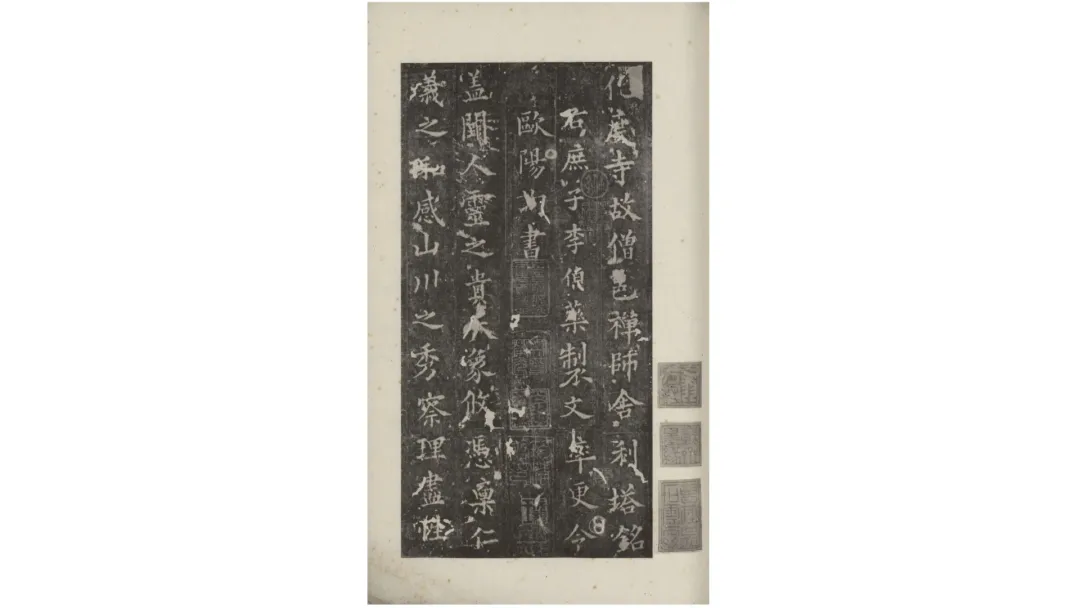 化度寺故僧邕禪師舍利塔銘
右庶子李藥製文率更令
歐陽詢書
盖聞人靈之貴天象攸憑稟仁
義之和感山川之秀察理盡性